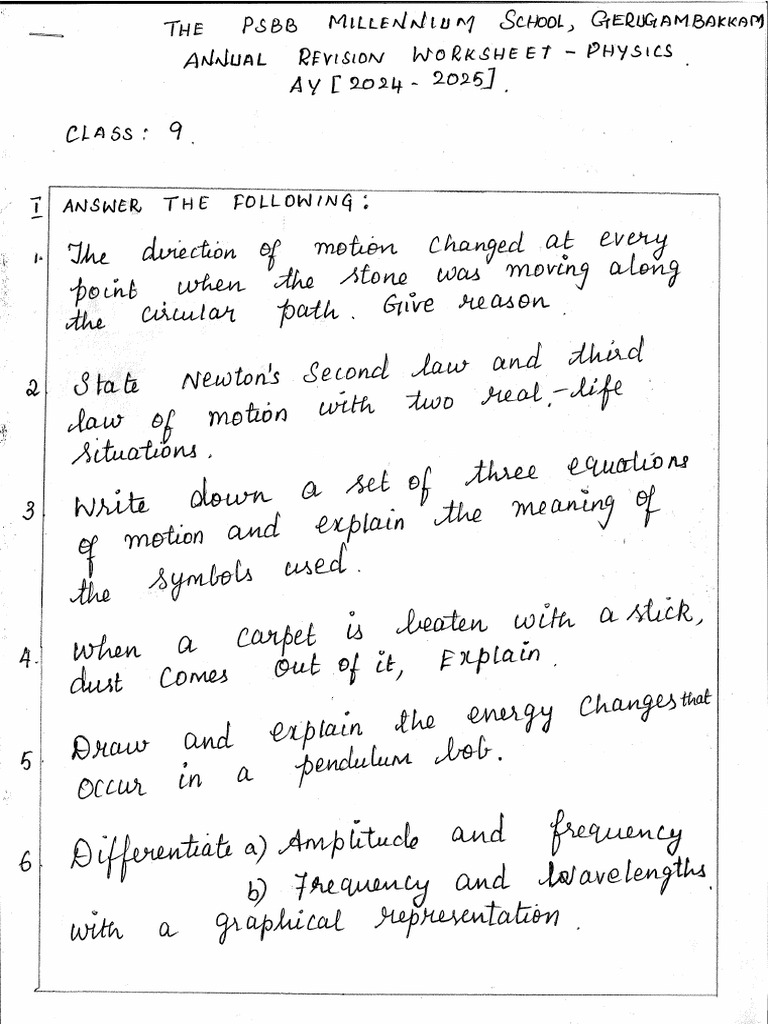 THE PSBB MILLENNIUM SCHOOL, GERUGAMBAKKAM
ANNUAL REVISION WORKSHEET - PHYSICS.
AY [2024 - 2025].
CLASS: 9.
I ANSWER THE FOLLOWING:
1. The direction of motion changed at every
point when the stone was moving along
the circular path. Give reason.
2. State Newton's Second law and third
law of motion with two real-life
situations.
3 Write down a set of three equations
of motion and explain the meaning of
the symbols used.
4. When a carpet is beaten with a stick,
dust comes out of it, Explain.
5 Draw and explain the energy changes that
occur in a pendulum bob.
6 Differentiate a) Amplitude and frequency
b) Frequency and Wavelengths.
with a graphical representation.